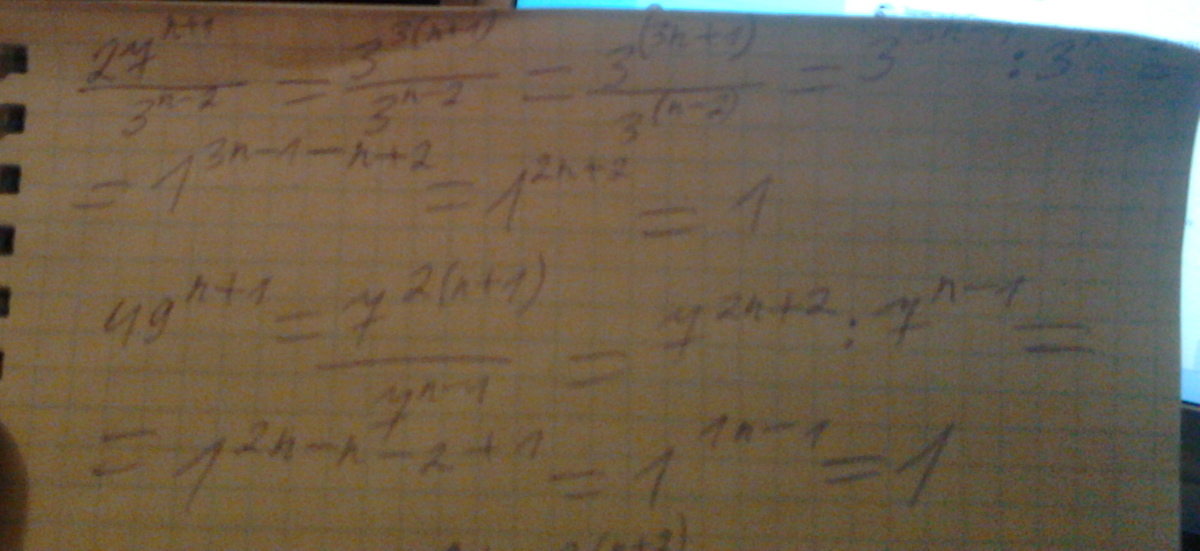 27^{n+1}/3^{n-2} = 3^{3(n+1)}/3^{n-2} = 3^{(3n+1)}/3^{(n-2)} = 3^{3n-1} : 3^{n} =
= 1^{3n-1-n+2} = 1^{2n+2} = 1
49^{n+1} = 7^{2(n+1)}/7^{n-1} = 7^{2n+2} : 7^{n-1} =
= 1^{2n-n-2+1} = 1^{1n-1} = 1
(n+2)